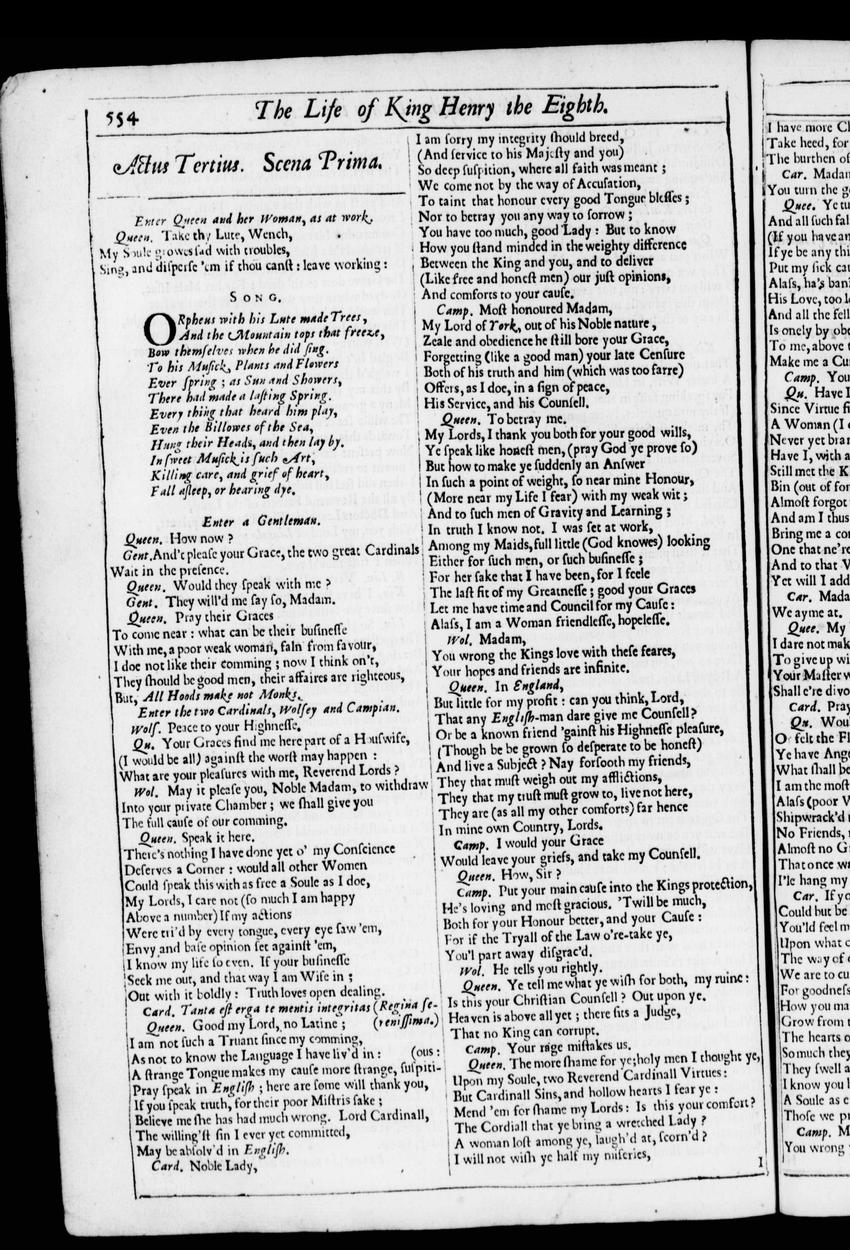 554
The Life of King Henry the Eighth.
Actus Tertius. Scena Prima.
Enter Queen and her Woman, as at work.
Queen. Take thy Lute, Wench,
My Soule growes sad with troubles,
Sing, and disperse 'em if thou canst : leave working :
SONG.
ORpheus with his Lute made Trees,
And the Mountain tops that freeze,
Bow themselves when he did sing.
To his Musick, Plants and Flowers
Ever spring ; as Sun and Showers,
There had made a lasting Spring.
Every thing that heard him play,
Even the Billowes of the Sea,
Hung their Heads, and then lay by.
In sweet Musick is such Art,
Killing care, and grief of heart,
Fall asleep, or hearing dye.
Enter a Gentleman.
Queen. How now ?
Gent. And't please your Grace, the two great Cardinals
Wait in the presence.
Queen. Would they speak with me ?
Gent. They will'd me say so, Madam.
Queen. Pray their Graces
To come near : what can be their businesse
With me, a poor weak woman, faln from favour,
I doe not like their comming ; now I think on't,
They should be good men, their affaires are righteous,
But, All Hoods make not Monks.
Enter the two Cardinals, Wolsey and Campian.
Wols. Peace to your Highnesse.
Qu. Your Graces find me here part of a Houswife,
(I would be all) against the worst may happen :
What are your pleasures with me, Reverend Lords ?
Wol. May it please you, Noble Madam, to withdraw
Into your private Chamber ; we shall give you
The full cause of our comming.
Queen. Speak it here.
There's nothing I have done yet o' my Conscience
Deserves a Corner : would all other Women
Could speak this with as free a Soule as I doe,
My Lords, I care not (so much I am happy
Above a number) If my actions
Were tri'd by every tongue, every eye saw 'em,
Envy and base opinion set against 'em,
I know my life so even. If your businesse
Seek me out, and that way I am Wife in ;
Out with it boldly : Truth loves open dealing.
Card. Tanta est erga te mentis integritas (Regina se-
Queen. Good my Lord, no Latine ; (renissima.)
I am not such a Truant since my comming,
As not to know the Language I have liv'd in : (ous :
A strange Tongue makes my cause more strange, suspiti-
Pray speak in English ; here are some will thank you,
If you speak truth, for their poor Mistris sake ;
Believe me she has had much wrong. Lord Cardinall,
The willing'st sin I ever yet committed,
May be absolv'd in English.
Card. Noble Lady,
I am sorry my integrity should breed,
(And service to his Majesty and you)
So deep suspition, where all faith was meant ;
We come not by the way of Accusation,
To taint that honour every good Tongue blesses ;
Nor to betray you any way to sorrow ;
You have too much, good Lady : But to know
How you stand minded in the weighty difference
Between the King and you, and to deliver
(Like free and honest men) our just opinions,
And comforts to your cause.
Camp. Most honoured Madam,
My Lord of York, out of his Noble nature,
Zeale and obedience he still bore your Grace,
Forgetting (like a good man) your late Censure
Both of his truth and him (which was too farre)
Offers, as I doe, in a sign of peace,
His Service, and his Counsell.
Queen. To betray me.
My Lords, I thank you both for your good wills,
Ye speak like honest men, (pray God ye prove so)
But how to make ye suddenly an Answer
In such a point of weight, so near mine Honour,
(More near my Life I fear) with my weak wit ;
And to such men of Gravity and Learning ;
In truth I know not. I was set at work,
Among my Maids, full little (God knowes) looking
Either for such men, or such businesse ;
For her sake that I have been, for I feele
The last fit of my Greatnesse ; good your Graces
Let me have time and Council for my Cause :
Alass, I am a Woman friendlesse, hopelesse.
Wol. Madam,
You wrong the Kings love with these feares,
Your hopes and friends are infinite.
Queen. In England,
But little for my profit : can you think, Lord,
That any English-man dare give me Counsell ?
Or be a known friend 'gainst his Highnesse pleasure,
(Though be be grown so desperate to be honest)
And live a Subject ? Nay forsooth my friends,
They that must weigh out my afflictions,
They that my trust must grow to, live not here,
They are (as all my other comforts) far hence
In mine own Country, Lords.
Camp. I would your Grace
Would leave your griefs, and take my Counsell.
Queen. How, Sir ?
Camp. Put your main cause into the Kings protection,
He's loving and most gracious. 'Twill be much,
Both for your Honour better, and your Cause :
For if the Tryall of the Law o're-take ye,
You'l part away disgrac'd.
Wol. He tells you rightly.
Queen. Ye tell me what ye wish for both, my ruine :
Is this your Christian Counsell ? Out upon ye.
Heaven is above all yet ; there sits a Judge,
That no King can corrupt.
Camp. Your rage mistakes us.
Queen. The more shame for ye; holy men I thought ye,
Upon my Soule, two Reverend Cardinall Virtues :
But Cardinall Sins, and hollow hearts I fear ye :
Mend 'em for shame my Lords : Is this your comfort ?
The Cordiall that ye bring a wretched Lady ?
A woman lost among ye, laugh'd at, scorn'd ?
I will not wish ye half my miseries,
I
I have more
Take heed, for
The burthen of
Car. Madam
You turn the
Quee. Ye
And all such
(If you have
If ye be any
Put my sick
Alass, ha's
His Love, too
And all the
Is onely by
To me, above
Make me a
Camp. You
Qu. Have I
Since Virtue
A Woman (I
Never yet
Have I, with a
Still met the
Bin (out of
Almost forgot
And am I thus
Bring me a
One that ne're
And to that
Yet will I add
Car.
We ayme at.
Quee. My
I dare not
To give up
Your Master
Shall e're
Card. Pray
Qu.
O' felt the
Ye have
What shall be
I am the most
Alass (poor
Shipwrack'd
No Friends,
Almost no
That once
I'le hang my
Car. If
Could but be
You'ld feel
Upon what
The way of
We are to
For
How you
Grow from
The hearts
So much they
They swell
I know you
A Soule as
Those we
Camp.
You wrong